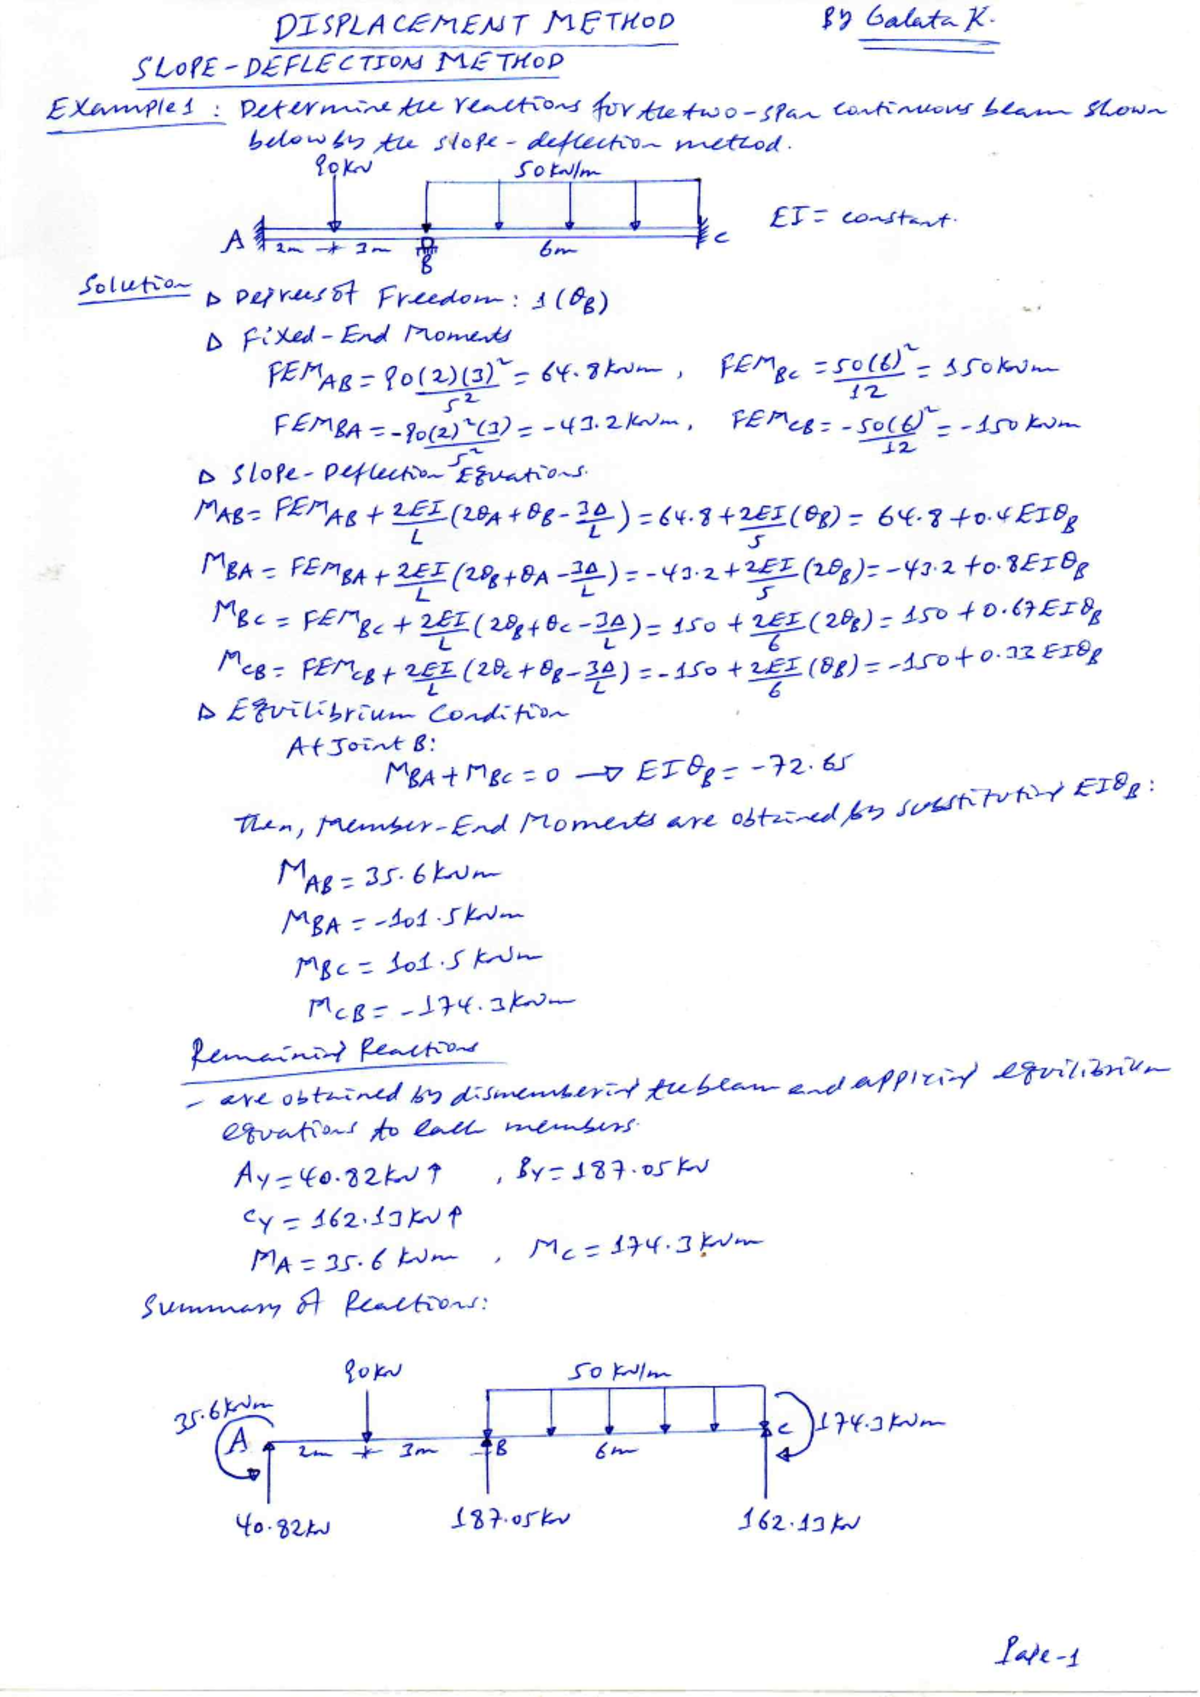 DISPLACEMENT METHOD
By Galata K.
SLOPE-DEFLECTION METHOD
Example 1: Determine the reactions for the two-span continuous beam shown
below by the slope-deflection method.
90kN 50kN/m
A 2m 3m B 6m C EI = constant.
Solution
▷ Degrees of Freedom: 1 (θB)
▷ Fixed-End Moments
FEM_AB = 90(2)(3)²/5² = 64.8kNm, FEM_BC = 50(6)²/12 = 150kNm
FEM_BA = -90(2)²(3)/5² = -43.2kNm, FEM_CB = -50(6)²/12 = -150kNm
▷ Slope-Deflection Equations.
M_AB = FEM_AB + 2EI/L (2θA + θB - 3Δ/L) = 64.8 + 2EI/5 (θB) = 64.8 + 0.4EIθB
M_BA = FEM_BA + 2EI/L (2θB + θA - 3Δ/L) = -43.2 + 2EI/5 (2θB) = -43.2 + 0.8EIθB
M_BC = FEM_BC + 2EI/L (2θB + θC - 3Δ/L) = 150 + 2EI/6 (2θB) = 150 + 0.67EIθB
M_CB = FEM_CB + 2EI/L (2θC + θB - 3Δ/L) = -150 + 2EI/6 (θB) = -150 + 0.33EIθB
▷ Equilibrium Condition
At Joint B:
M_BA + M_BC = 0 → EIθB = -72.65
Then, Member-End Moments are obtained by substituting EIθB:
M_AB = 35.6kNm
M_BA = -101.5kNm
M_BC = 101.5kNm
M_CB = -174.3kNm
Remaining Reactions
- are obtained by dismembering the beam and applying equilibrium
equations to each members.
Ay = 40.82kN↑, By = 187.05kN
Cy = 162.13kN↑
M_A = 35.6kNm, M_C = 174.3kNm
Summary of Reactions:
90kN 50kN/m
35.6kNm A 2m 3m B 6m C 174.3kNm
40.82kN 187.05kN 162.13kN
Page-1